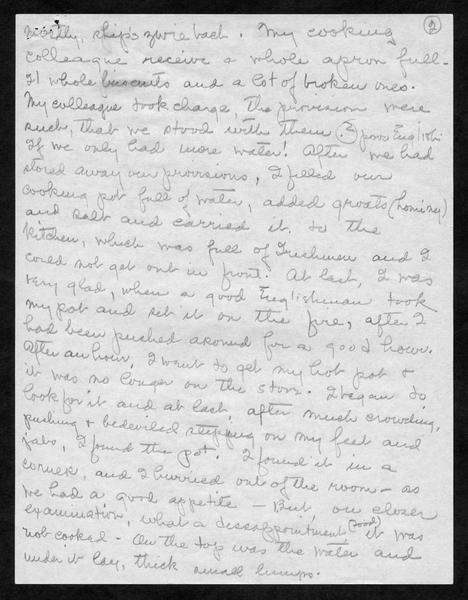 2
mostly, ship's zwieback. My cooking
colleague receive a whole apron full.
21 whole biscuits and a lot of broken ones.
My colleague took charge, the provision were
such, that we stood with them poor English
If we only had more water! After we had
stored away our provisions, I filled our
cooking pot full of water, added groats (hominy)
and salt and carried it to the
kitchen, which was full of Irishmen and I
could not get out in front. At last, I was
very glad, when a good Englishman took
my pot and set it on the fire, after I
had been pushed around for a good hour.
After an hour, I went to get my hot pot &
it was no longer on the stove. I began to
look for it and at last, after much crowding,
pushing & bedeviled stepping on my feet and
jabs, I found the pot. I found it in a
corner, and I hurried out of the room - as
we had a good appetite - But, on closer
examination, what a dissappointment (food) it was
not cooked - On the top was the water and
under it lay, thick small lumps.